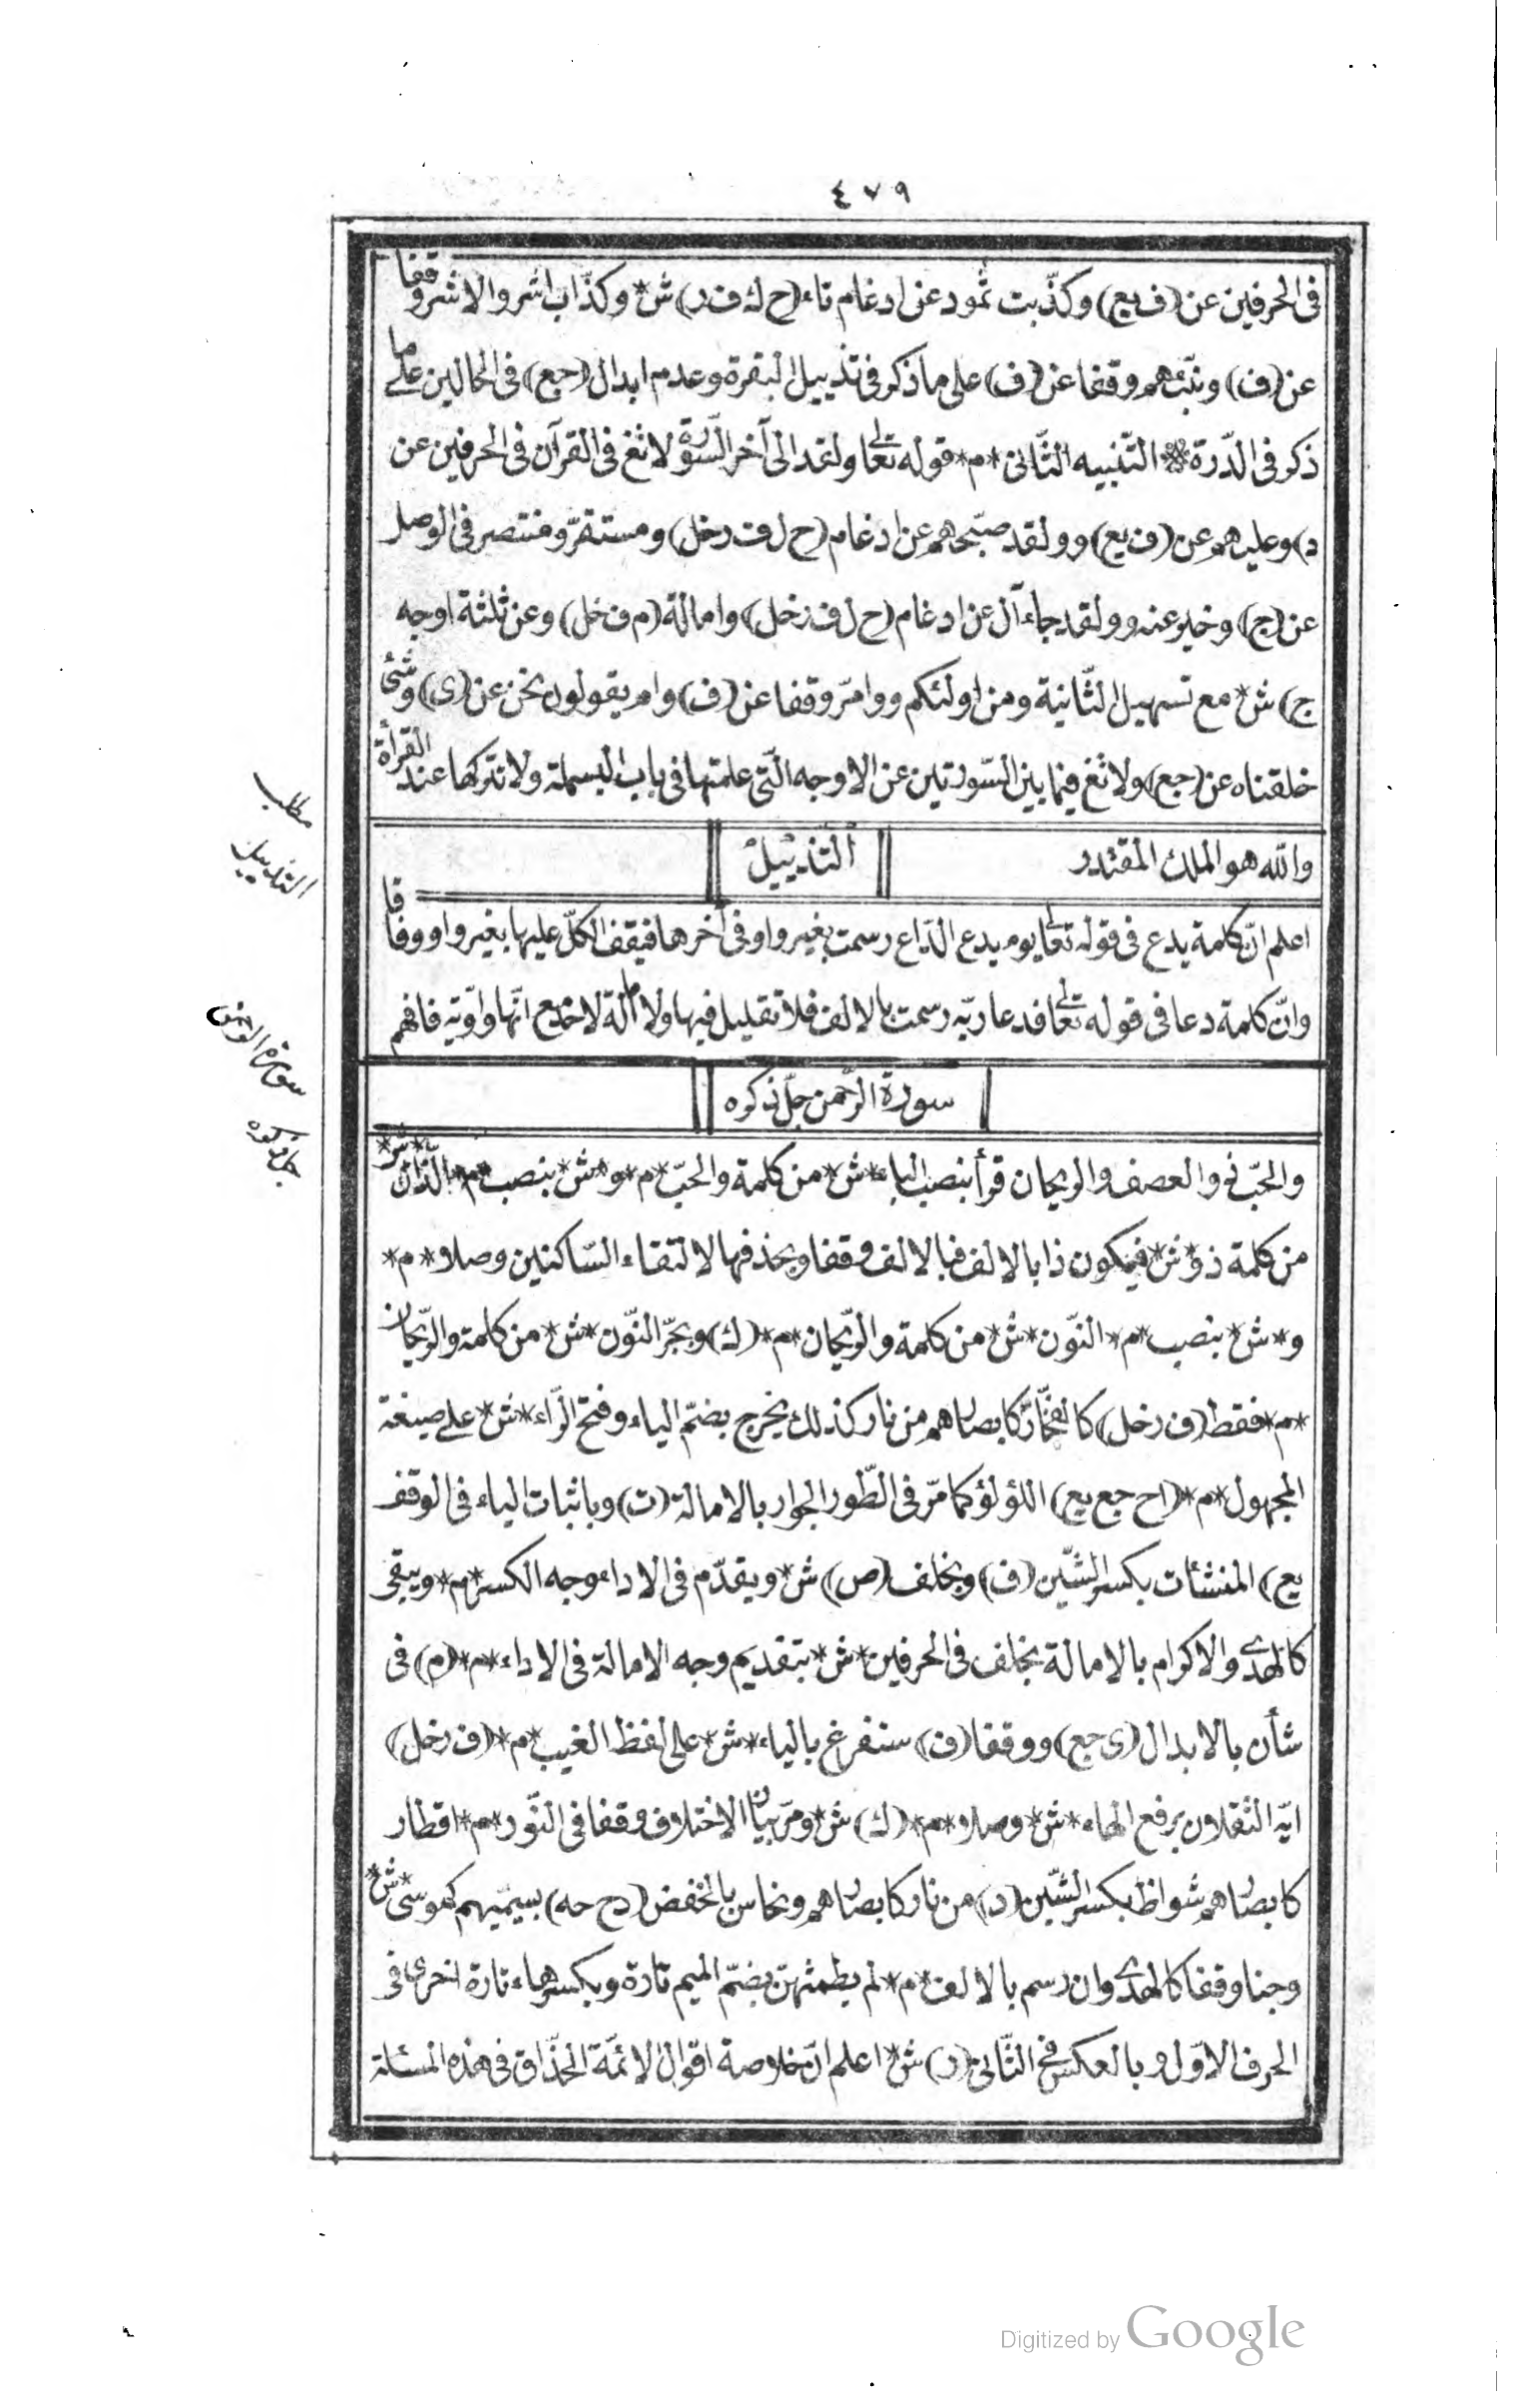 ٤٧٩
فى الحرفين عن (ف يع) وكذّبت ثمود عن ادغام تاء (ح ك ف ر) ش* وكذّاب اشر والاشر وقفا
عن (ف) ونبّئهم وقفا عن (ف) على ما ذكر فى تذييل البقرة وعدم ابدال (جع) فى الحالين على ما
ذكر فى الدّرة * التّنبيه الثّانى *م* قوله تعالى ولقد الى آخر السّورة لا تغ فى القرآن فى الحرفين عن
د) وعليهم عن (ف يع) وولقد صبّحهم عن ادغام (ح ل ف رخل) ومستقرّ ومنتصر فى الوصل
عن (ج) وخير عنه وولقد جاء آل عن ادغام (ح ل ف رخل) وامالة (م ف خل) وعن ثلثة اوجه
ج) ش* مع تسهيل الثّانية ومن اولئكم ووامرّ وقفا عن (ف) وام يقولون نحن عن (ى) وشئ
خلقناه عن (جع) ولا تغ فيما بين السّورتين عن الاوجه الّتى علمتها فى باب البسملة ولا تتركها عند القرأة
والله هو الملك المقتدر
التّذييل
اعلم انّ كلمة يدع فى قوله تعالى يوم يدع الدّاع رسمت بغير واو فى آخرها فيقف الكلّ عليها بغير واو وفاقا
وانّ كلمة دعا فى قوله تعالى فدعا ربّه رسمت بالالف فلا تقليل فيها ولا امالة لاحد مع انّها واويّة فافهم
سورة الرّحمن جلّ ذكره
والحبّ ذو العصف والريحان قرأ بنصب الباء *ش* من كلمة والحبّ *م* و *ش* بنصب *م* بالذّال *ش*
من كلمة ذو *ش* فيكون ذا بالالف فبالالف وقفا وبحذفها لالتقاء السّاكنين وصلا *م*
و *ش* بنصب *م* النّون *ش* من كلمة والرّيحان *م* (ك) وبجرّ النّون *ش* من كلمة والرّيحان
*م* فقط (ف رخل) كالفخّار كابصارهم من نار كذلك يخرج بضمّ الياء وفتح الرّاء *ش* على صيغة
المجهول *م* (اح جع يع) اللؤلؤ كما مرّ فى الطّور الجوار بالامالة (ت) وباثبات الياء فى الوقف
يع) المنشئات بكسر الشّين (ف) وبخلف (ص) ش* ويقدّم فى الاداء وجه الكسر *م* ويبقى
كالهدى والاكرام بالامالة بخلف فى الحرفين *ش* بتقديم وجه الامالة فى الاداء *م* (م) فى
شأن بالابدال (ى جع) ووقفا (ف) سنفرغ بالياء *ش* على لفظ الغيب *م* (ف رخل)
ايّه الثّقلان برفع الهاء *ش* وصلا *م* (ك) ش* ومرّ بيان الاختلاف وقفا فى النّور *م* اقطار
كابصارهم شواظ بكسر الشّين (د) من نار كابصارهم ونحاس بالخفض (دح حه) بسيميهم كموسى *ش*
وجنا وقفا كالهدى وان رسم بالالف *م* لم يطمثهنّ بضمّ الميم تارة وبكسرها تارة اخرى فى
الحرف الاوّل وبالعكس فى الثّانى (ر) ش* اعلم انّ خلاصة اقوال الائمّة الحذّاق فى هذه المسئلة
مطلب
التذييل
سورة الرحمن
جل ذكره
Digitized by Google